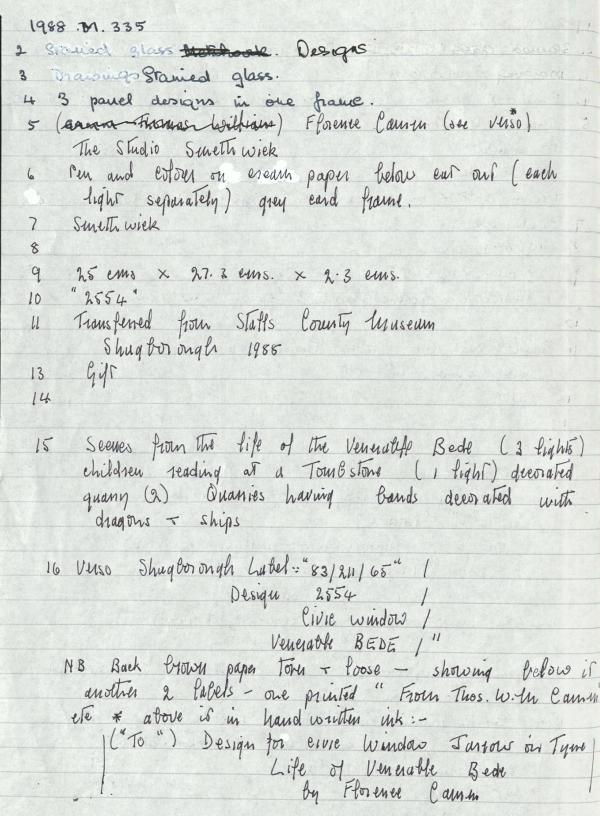 1988.M.335
2 Stained glass Notebook. Designs
3 Drawings Stained glass.
4 3 panel designs in one frame.
5 (Thomas William) Florence Camm (see verso*)
The Studio Smethwick
6 Pen and colour on cream paper below cut out (each
light separately) grey card frame.
7 Smethwick
8
9 25 cms x 27.3 cms. x 2.3 cms.
10 "2554"
11 Transferred from Staffs County Museum
Shugborough 1985
13 Gift
14
15 Scenes from the life of the Venerable Bede (3 lights)
children reading at a Tombstone (1 light) decorated
quarry (2) Quarries having bands decorated with
dragons + ships
16 Verso Shugborough Label:- "83/211/65" /
Design 2554 /
Civic window /
Venerable BEDE / "
NB Back brown paper torn + loose - showing below it
another 2 labels - one printed "From Thos. W. Camm"
etc * above is in hand written ink:-
("To") Design for civic Window Jarrow on Tyne
Life of Venerable Bede
by Florence Camm